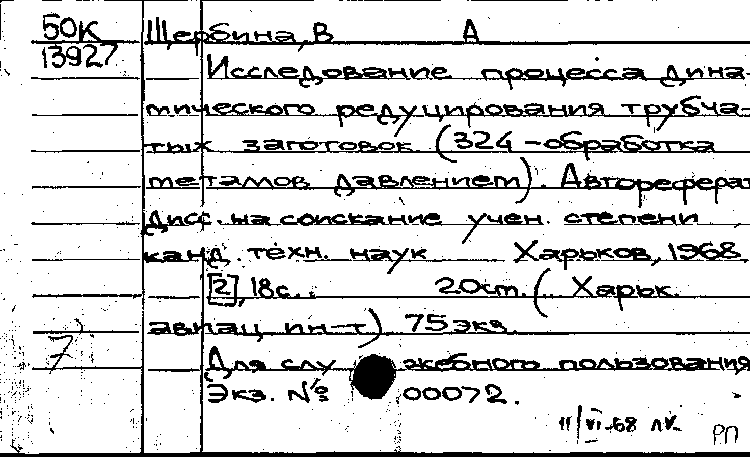 50К Щербина, В А
13927
Исследование процесса дина-
мического редуцирования трубча-
тых заготовок (324 - обработка
метамов давлением). Автореферат
дисс. на соискание учен. степени
канд. техн. наук Харьков, 1968
[2], 18с. 20см. (Харьк.
авиац ин-т) 75экз.
7 Для служебного пользования
Экз. № 00072.
11/VI-68 РП